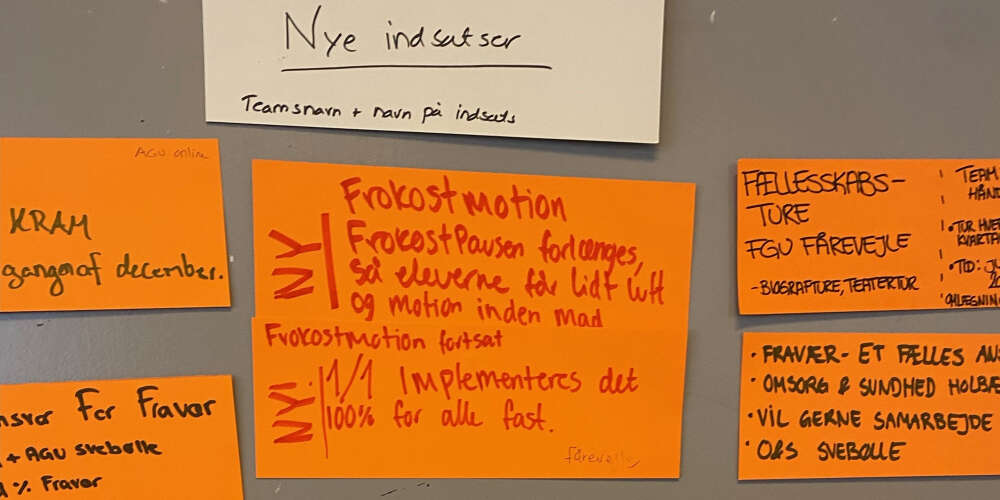 Nye indsatser
Teamsnavn + navn på indsats
AGU online
KRAM
gangen af december.
NY
Frokostmotion
FrokostPausen forlænges,
så eleverne får lidt luft
og motion inden mad
Frokostmotion fortsat
NY!
1/1 Implementeres det
100% for alle fast.
fårevejle
For Fravær
+ AGU svebølle
% Fravær
FÆLLESSKABS-
TURE
FGU FÅREVEJLE
- BIOGRAFTURE, TEATERTUR
TEAM
HÅND
• TUR HVER
KVARTAL
• TID:
• FRAVÆR - ET FÆLLES ANS
• OMSORG & SUNDHED HOLBÆ
• VIL GERNE SAMARBEJDE
• O&S SVEBØLLE